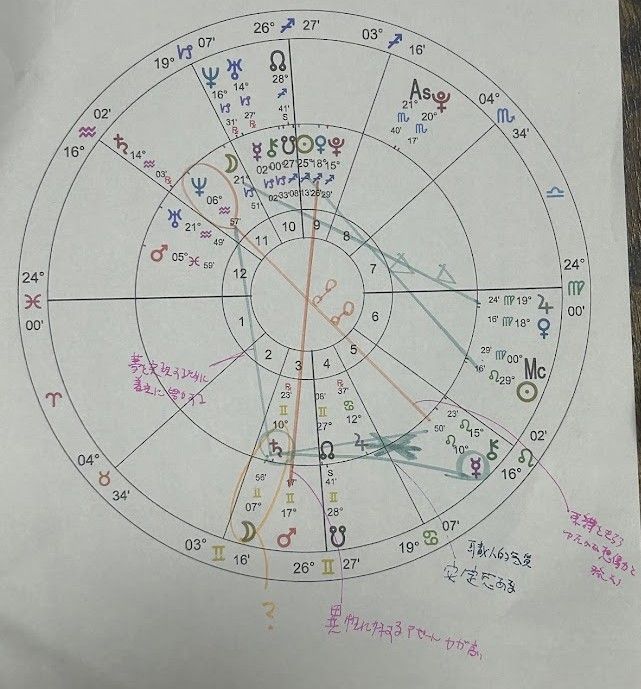 26° ♐ 27'
03° ♐ 16'
04° ♏ 34'
♎
24° ♍ 00'
02' ♌ 16°
07' ♋ 19°
26° ♊ 27'
03° ♊ 16'
04° ♉ 34'
♈
24° ♓ 00'
02' ♒ 16°
19° ♑ 07'
♆ 16° ♑ 31' ℞
♅ 14° ♑ 27' ℞
☊ 28° ♐ 41' S
As 21° ♏ 40'
♇ 20° ♏ 17'
♄ 14° ♒ 03' ℞
☽ 21° ♑ 51'
☿ 02° ♑ 02'
⚷ 00° ♑ 33'
☋ 27° ♐ 08'
☉ 25° ♐ 13'
♀ 18° ♐ 26'
♇ 15° ♐ 29'
♆ 06° ♒ 57'
♅ 21° ♒ 49'
♂ 05° ♓ 59'
24' ♍ 19° ♃
16' ♍ 18° ♀
29' ♍ 00° Mc
16' ♌ 29° ☉
23' ♌ 15° ⚷
50' ♌ 10° ☿
37' ♋ 12° ♃ ℞
06' ♊ 27° ☊
℞ 23' ♊ 10° ♄
56' ♊ 07° ☽
17' ♊ 17° ♂
S 41' ♊ 28° ☋
10 9
11 8
12 7
1 6
2 5
3 4
夢を実現するために
職人的気質
安定感ある
異性に対するアピール力が高い
?